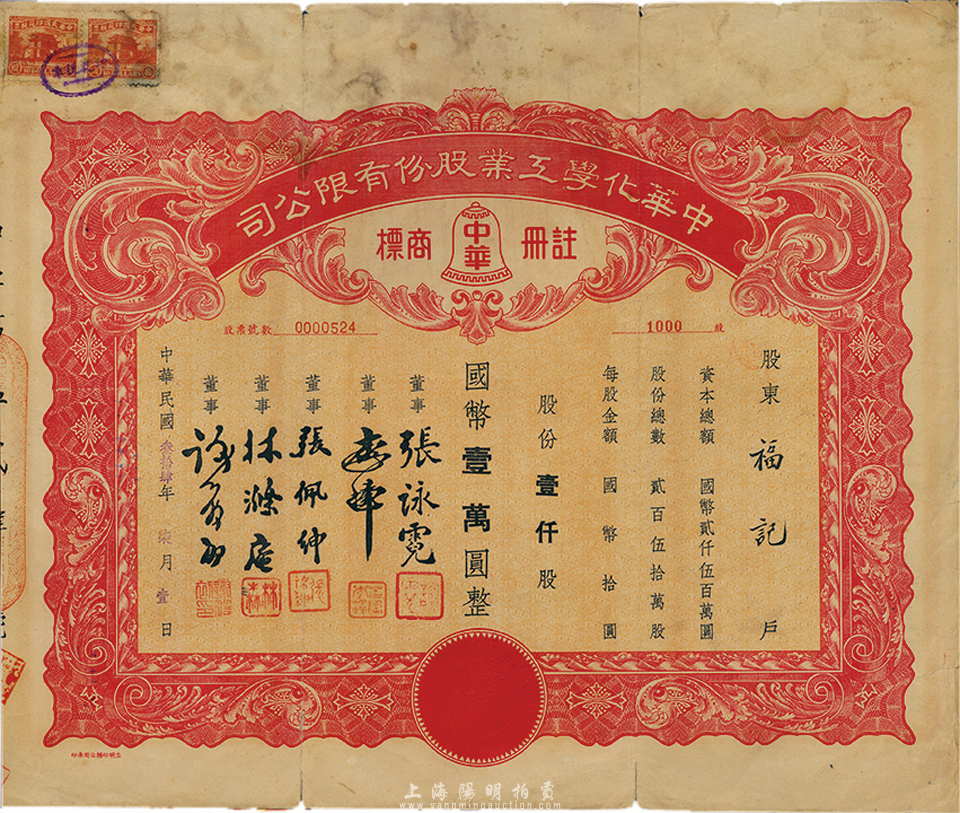 中華化學工業股份有限公司
註冊 中華 商標
1000 股
股票號數 0000524
股東 福記 戶
資本總額 國幣貳仟伍百萬圓
股份總數 貳百伍拾萬股
每股金額 國幣拾圓
股份壹仟股
國幣壹萬圓整
董事 張詠霓
董事
董事 張佩紳
董事 林滌庵
董事
中華民國叁拾肆年柒月壹日
上海陽明拍賣
www.yangmingauction.com